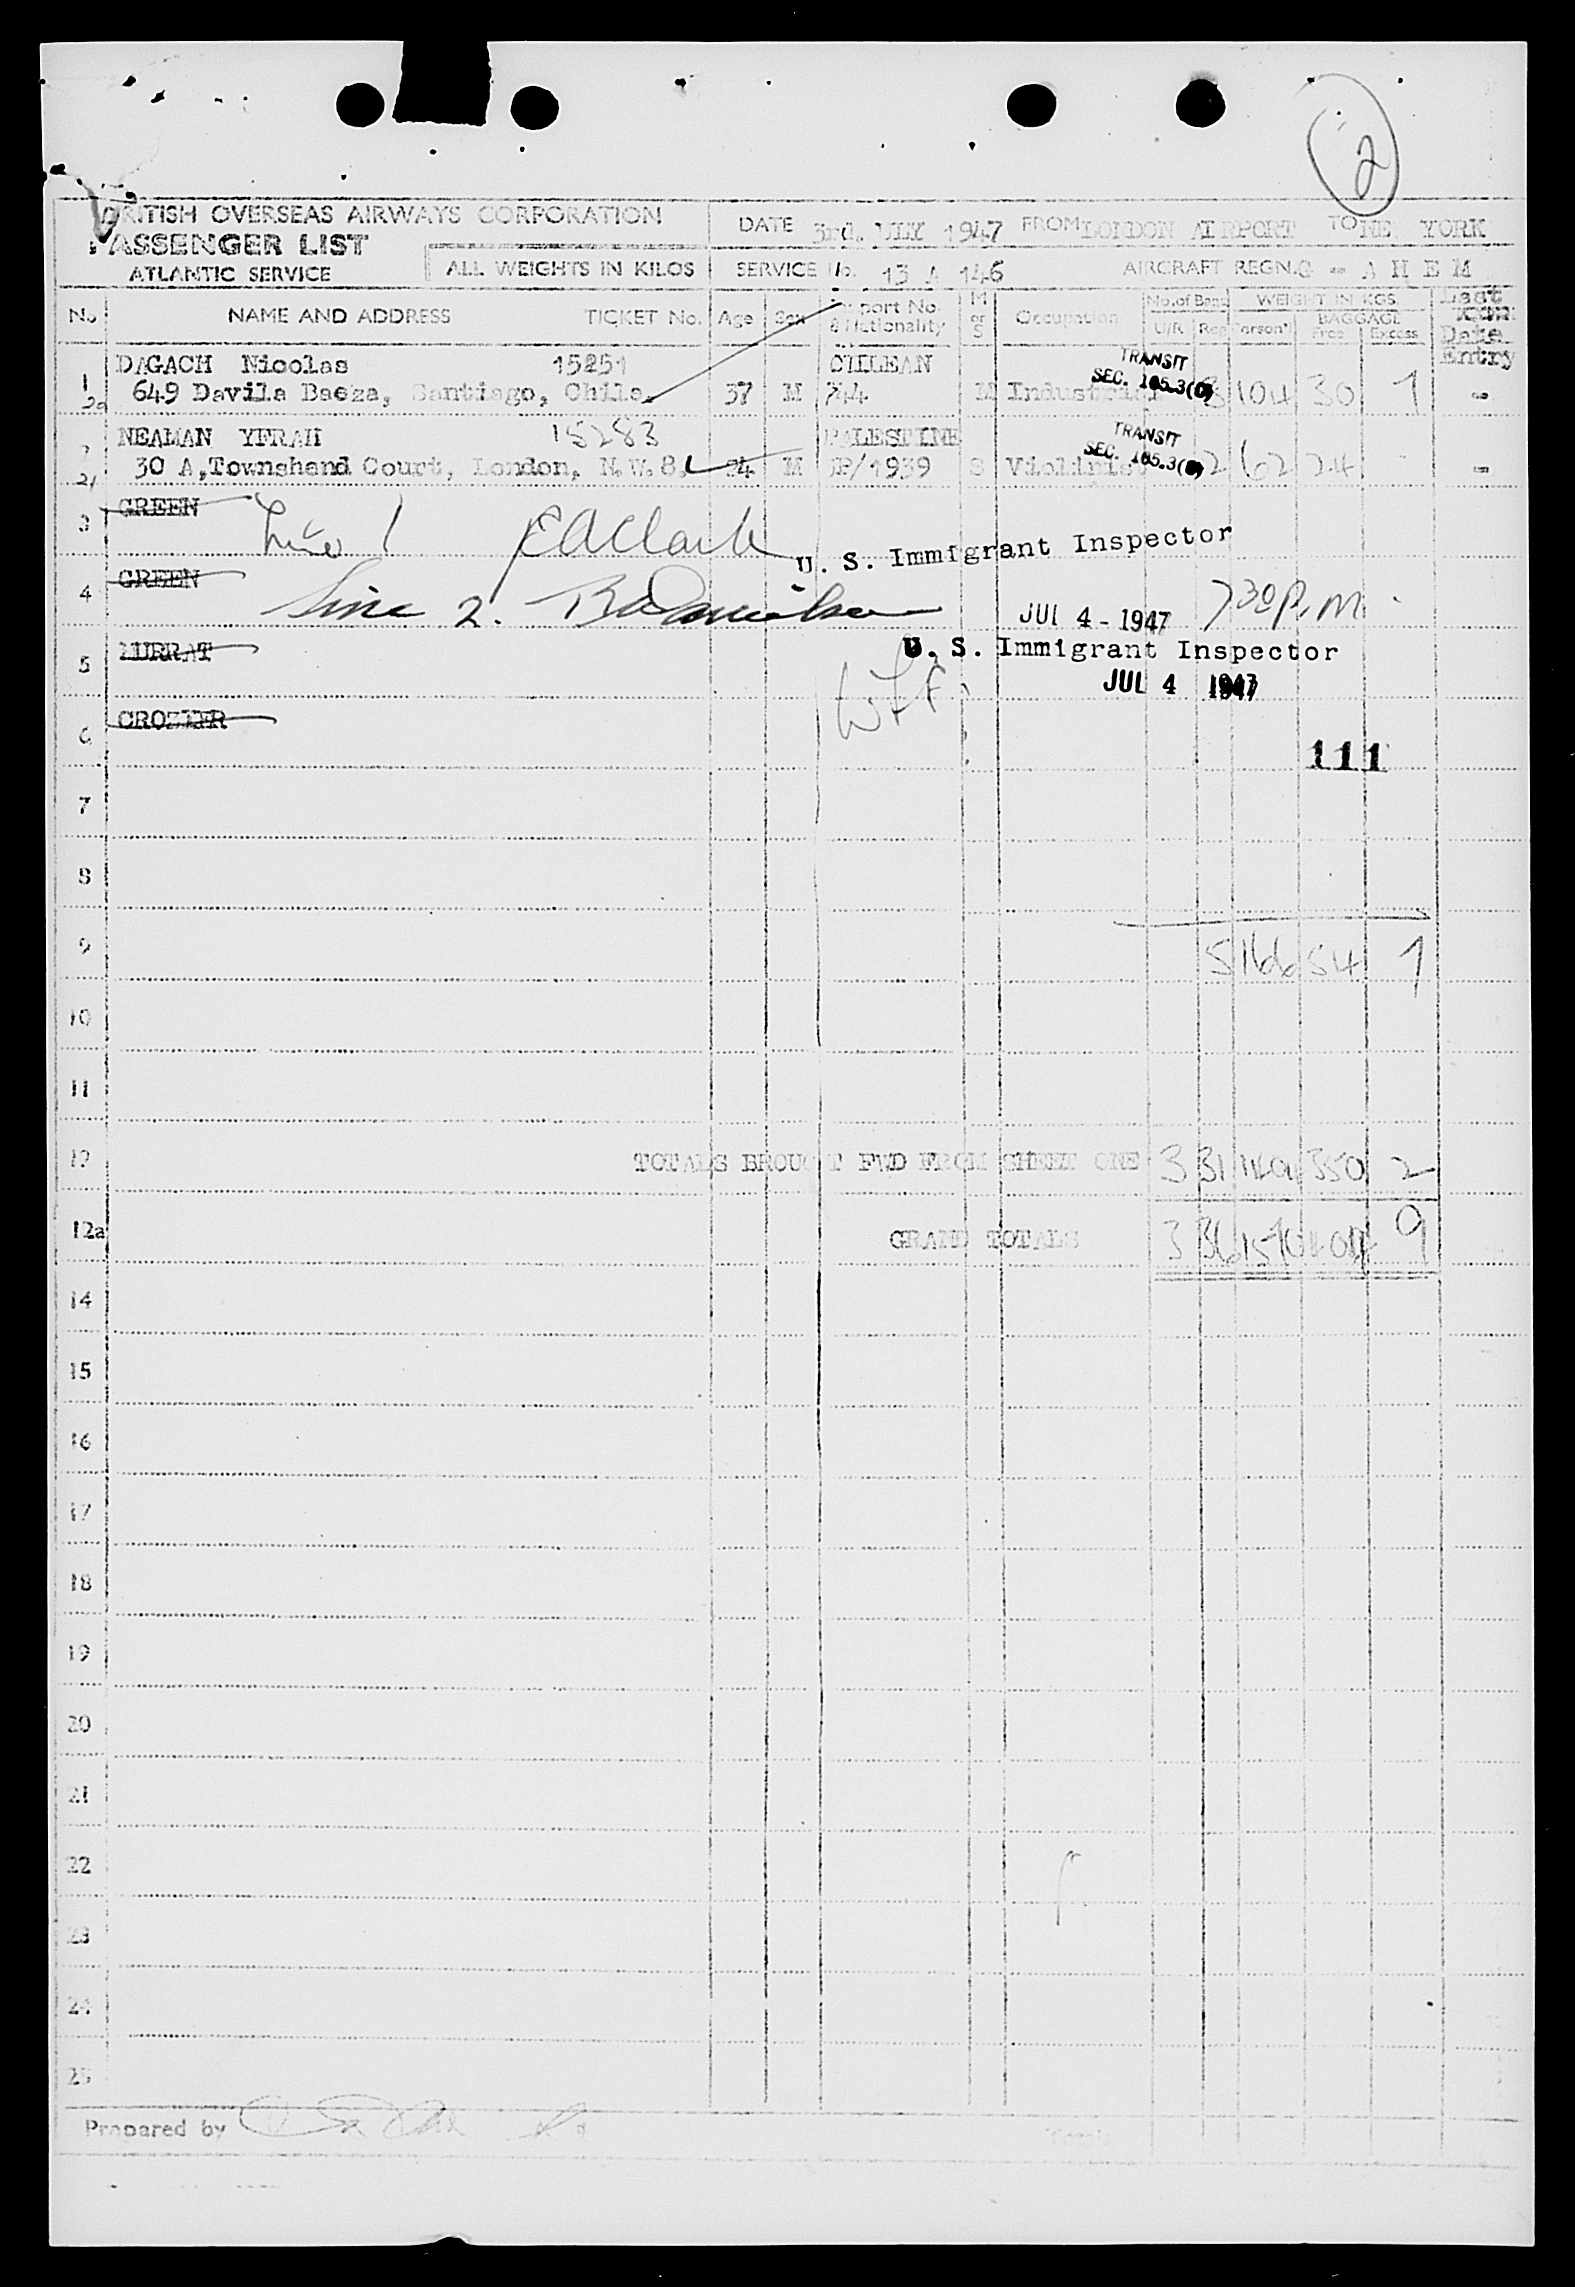 2
BRITISH OVERSEAS AIRWAYS CORPORATION
PASSENGER LIST
ATLANTIC SERVICE
ALL WEIGHTS IN KILOS
DATE 3rd. JULY 1947 FROM LONDON AIRPORT TO NEW YORK
SERVICE No. 13 A 146 AIRCRAFT REGN. G - A H E M
No NAME AND ADDRESS TICKET No. Age Sex Passport No. & Nationality M or S Occupation No. of Bags U/R Reg WEIGHT IN KGS. Person'l BAGGAGE Free Excess Last Date Entry
1 DAGACH Nicolas 15251 CHILEAN TRANSIT
649 Davila Baeza, Santiago, Chile. 37 M 744 M Industrial SEC. 105.3(C) 3 104 30 7 -
2 NEAMAN YFRAH 15283 PALESTINE TRANSIT
30 A, Townshend Court, London, N.W.8. 24 M /1939 S Violinist SEC. 105.3(C) 2 62 24 - -
3 GREEN
Line 1 EAClark U. S. Immigrant Inspector
4 GREEN
Line 2. JUL 4 - 1947 730 p.m.
5 MURRAY U. S. Immigrant Inspector
JUL 4 1947
6 CROZIER
111
7
8
9 5 166 54 7
10
11
12 TOTALS BROUGHT FWD FROM SHEET ONE 3 31 1404 350 2
12a GRAND TOTALS 3 36 1570 404 9
14
15
16
17
18
19
20
21
22
23
24
25
Prepared by